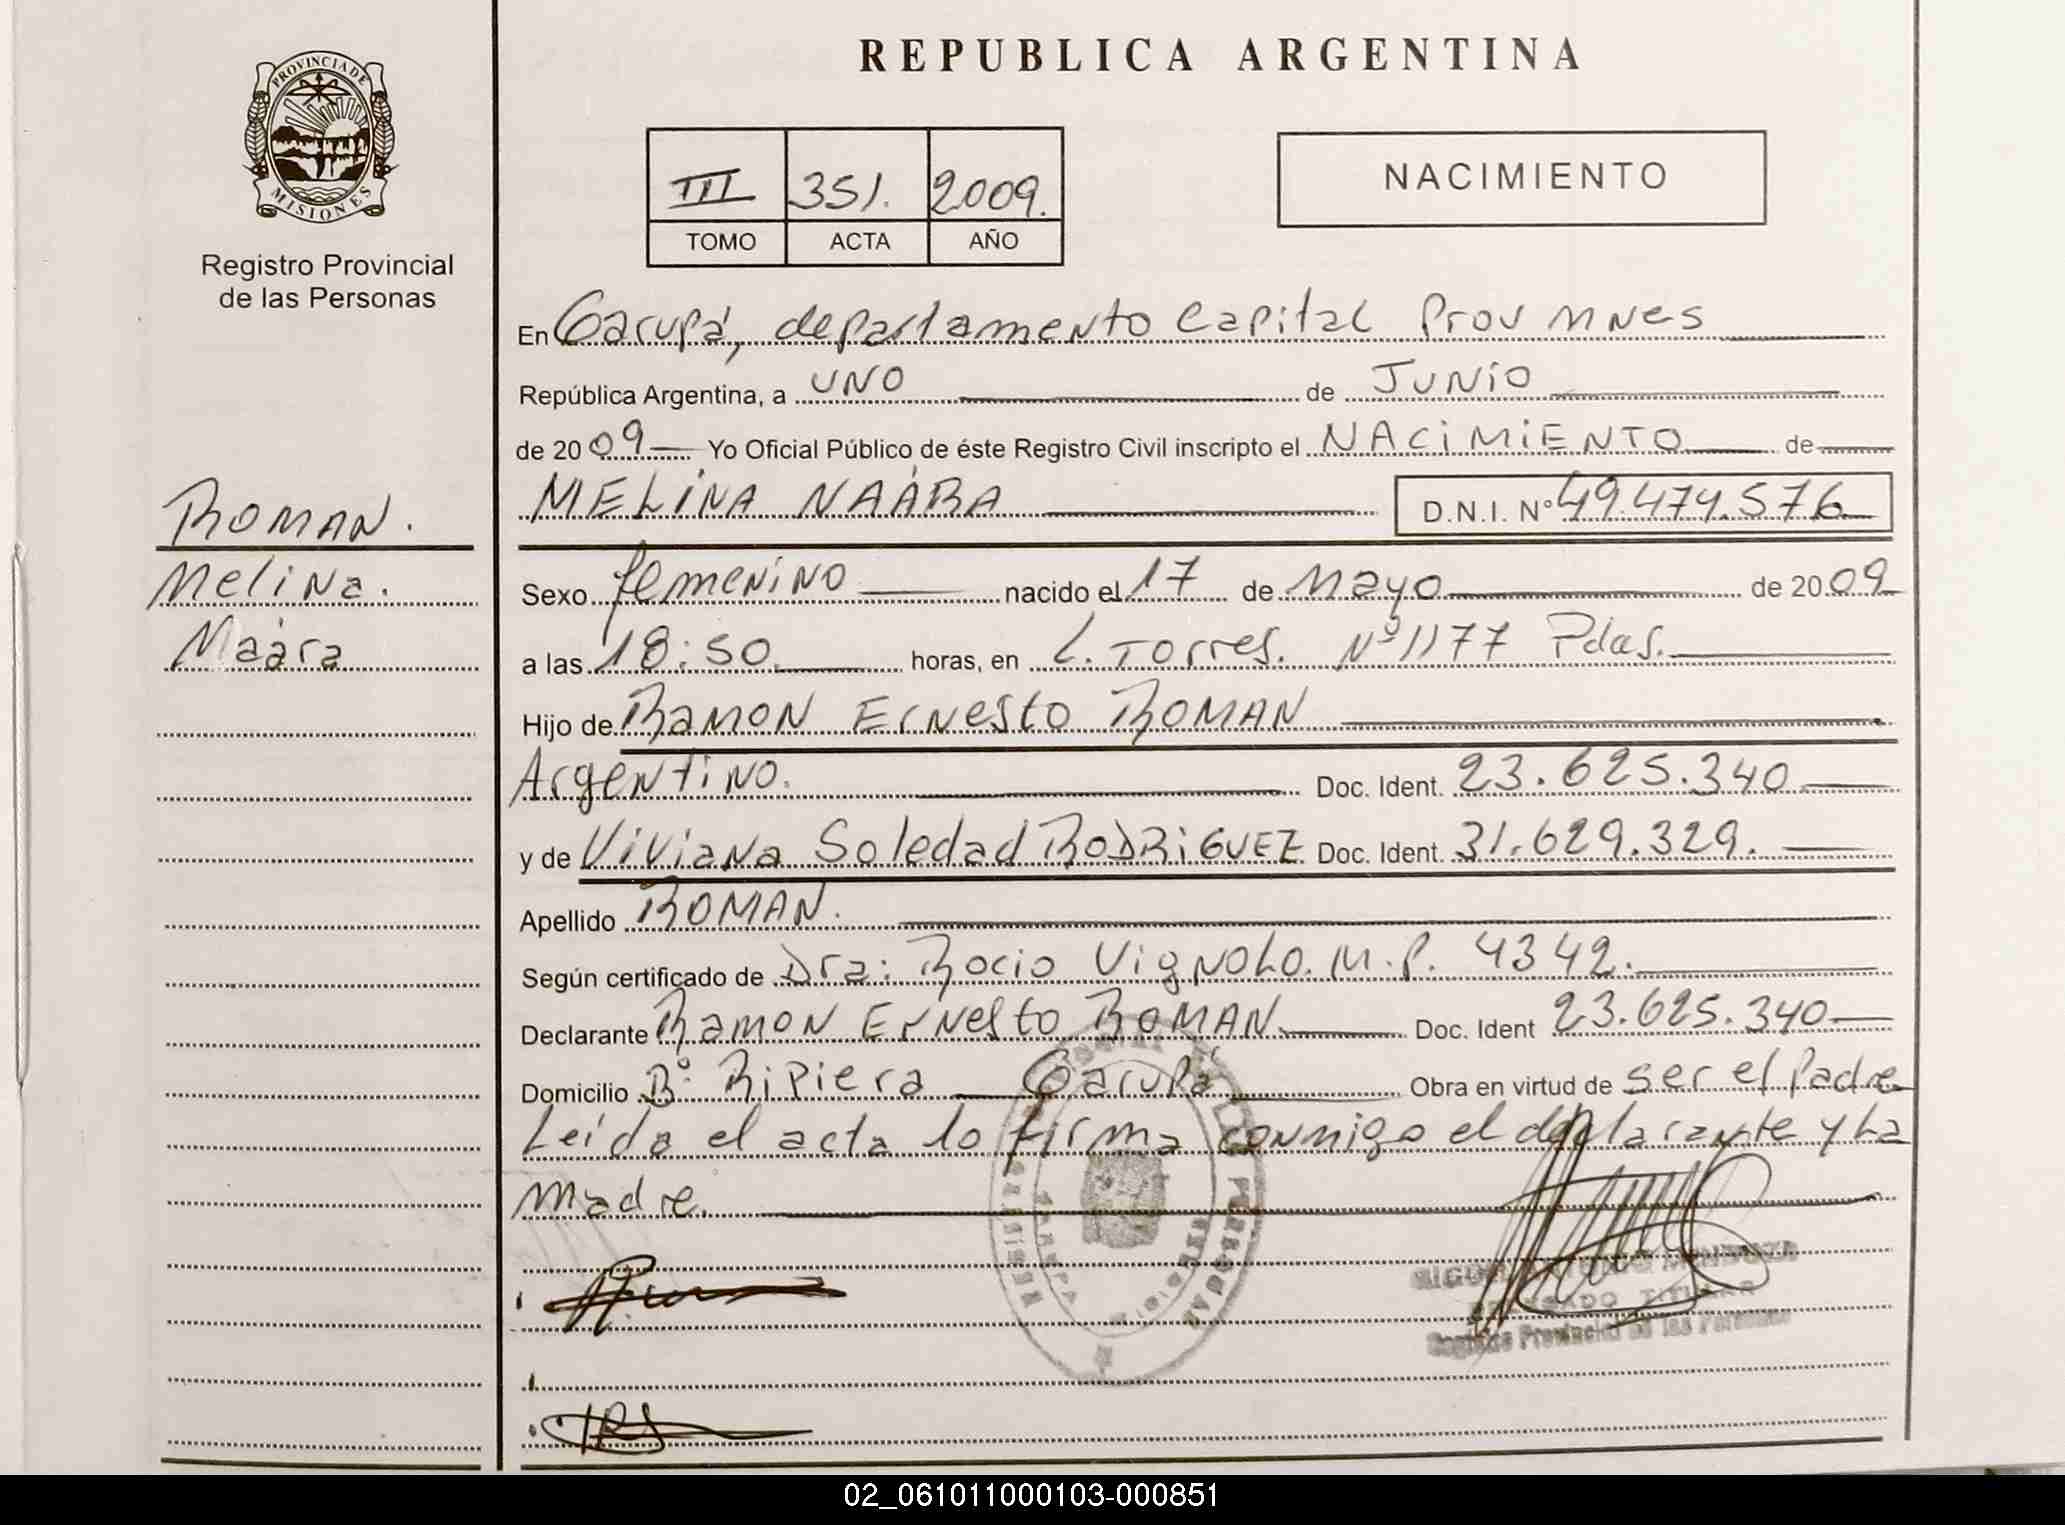 REPUBLICA ARGENTINA
PROVINCIA DE
MISIONES
Registro Provincial
de las Personas
III 351. 2009.
TOMO ACTA AÑO
NACIMIENTO
En Garupá, departamento Capital Prov Mnes
República Argentina, a UNO de JUNIO
de 2009 Yo Oficial Público de éste Registro Civil inscripto el NACIMIENTO de
ROMAN.
Melina.
Maára
MELINA NAÁRA D.N.I. Nº 49.474.576
Sexo femenino nacido el 17 de Mayo de 2009
a las 18:50 horas, en L. Torres. Nº 1177 Pdas.
Hijo de Ramon Ernesto ROMAN
Argentino. Doc. Ident. 23.625.340
y de Viviana Soledad RODRIGUEZ Doc. Ident. 31.629.329.
Apellido ROMAN.
Según certificado de Dra: Rocio Vignolo. M.P. 4342.
Declarante Ramon Ernesto ROMAN Doc. Ident 23.625.340
Domicilio Bº Ripiera Garupá Obra en virtud de ser el Padre
Leida el acta lo firma conmigo el declarante y la
madre.
TITULAR
Registro Provincial de las Personas
02_061011000103-000851